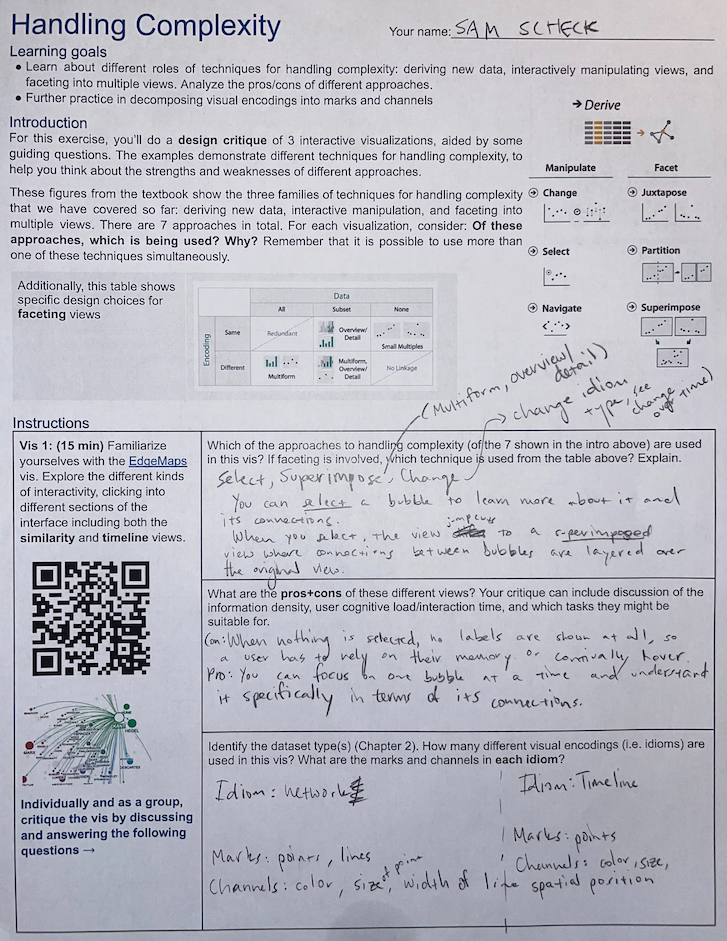 Handling Complexity
Your name: SAM SCHECK
Learning goals
• Learn about different roles of techniques for handling complexity: deriving new data, interactively manipulating views, and
faceting into multiple views. Analyze the pros/cons of different approaches.
• Further practice in decomposing visual encodings into marks and channels
Introduction
For this exercise, you'll do a design critique of 3 interactive visualizations, aided by some
guiding questions. The examples demonstrate different techniques for handling complexity, to
help you think about the strengths and weaknesses of different approaches.
These figures from the textbook show the three families of techniques for handling complexity
that we have covered so far: deriving new data, interactive manipulation, and faceting into
multiple views. There are 7 approaches in total. For each visualization, consider: Of these
approaches, which is being used? Why? Remember that it is possible to use more than
one of these techniques simultaneously.
→ Derive
Manipulate Facet
Change Juxtapose
Select Partition
Navigate Superimpose
Additionally, this table shows
specific design choices for
faceting views
Data
All Subset None
Encoding
Same Redundant Overview/
Detail Small Multiples
Different Multiform Multiform,
Overview/
Detail No Linkage
(Multiform, overview/
detail)
→ change idiom
type, see
change
over time)
Instructions
Vis 1: (15 min) Familiarize
yourselves with the EdgeMaps
vis. Explore the different kinds
of interactivity, clicking into
different sections of the
interface including both the
similarity and timeline views.
MARX
HEGEL
DESCARTES
Individually and as a group,
critique the vis by discussing
and answering the following
questions →
Which of the approaches to handling complexity (of the 7 shown in the intro above) are used
in this vis? If faceting is involved, which technique is used from the table above? Explain.
Select, Superimpose, Change
You can select a bubble to learn more about it and
its connections.
When you select, the view jump cuts to a superimposed
view where connections between bubbles are layered over
the original view.
What are the pros+cons of these different views? Your critique can include discussion of the
information density, user cognitive load/interaction time, and which tasks they might be
suitable for.
Con: When nothing is selected, no labels are shown at all, so
a user has to rely on their memory or hover.
Pro: You can focus on one bubble at a time and understand
it specifically in terms of its connections.
Identify the dataset type(s) (Chapter 2). How many different visual encodings (i.e. idioms) are
used in this vis? What are the marks and channels in each idiom?
Idiom: network
Marks: points, lines
Channels: color, size of point, width of line
Idiom: Timeline
Marks: points
Channels: color, size,
spatial position